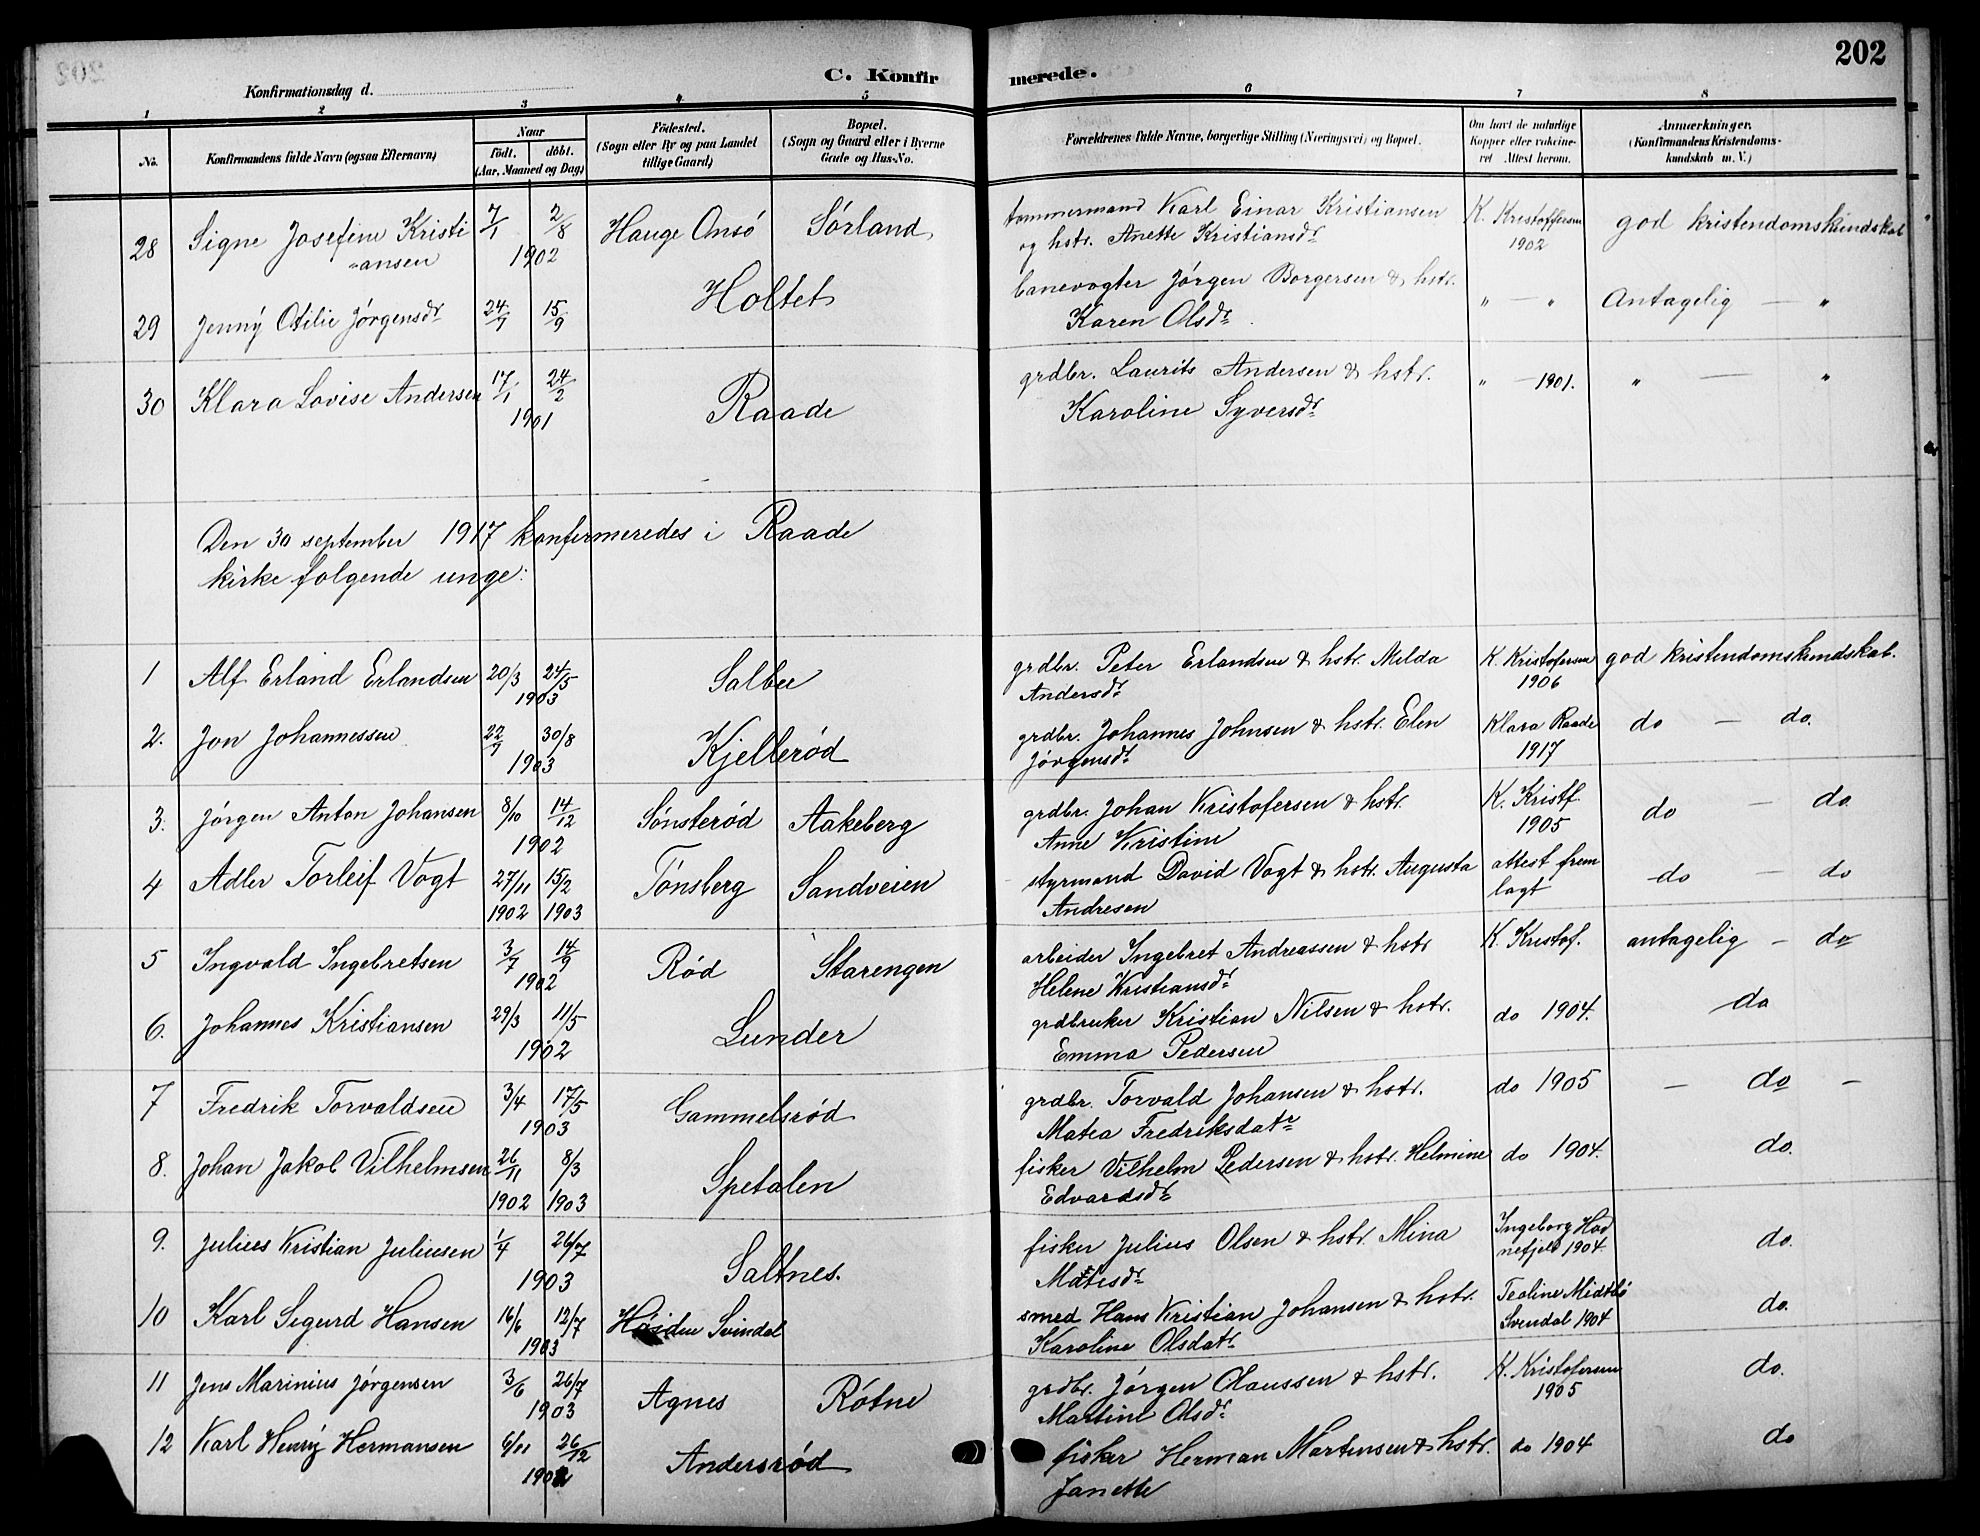 202
C. Konfirmerede.
Konfirmationsdag d.
1 2 3 4 5 6 7 8
No. Konfirmandens fulde Navn (ogsaa Efternavn) Naar født. døbt. (Aar, Maaned og Dag) Fødested. (Sogn eller By og paa Landet tillige Gaard) Bopæl. (Sogn og Gaard eller i Byerne Gade og Hus-No. Forældrenes fulde Navne, borgerlige Stilling (Næringsvei) og Bopæl. Om havt de naturlige Kopper eller vakcineret Attest herom. Anmærkninger. (Konfirmandens Kristendomskundskab m. V.)
28 Signe Josefine Kristi 7/1 2/8 Hauge Onsö Sörland tømmermand Karl Einar Kristiansen K. Kristoffersen god kristendomskundskab
-ansen 1902 og hstr. Anette Kristiansdr 1902
29 Jenny Otilie Jörgensdr 24/7 15/9 Holtet banevogter Jörgen Borgersen & hstr. " — " Antagelig — "
Karen Olsdr
30 Klara Lovise Andersen 17/1 24/2 Raade grdbr. Laurits Andersen & hstr. " — 1901. " — "
1901 Karoline Syversdr
Den 30 september 1917 konfirmeredes i Raade
kirke følgende unge:
1 Alf Erland Erlandsen 20/3 24/5 Salbu grdbr. Peter Erlandsen & hstr. Milda K. Kristofersen god kristendomskundskab.
1903 Andersdr 1906
2. Jon Johannessen 22/7 30/8 Kjellerød grdbr. Johannes Johnsen & hstr. Elen Klara Raade do — do.
1903 Jörgensdr 1917
3. Jörgen Anton Johansen 8/10 14/12 Sönsterød Aakeberg grdbr. Johan Kristofersen & hstr. K. Kristf. do — do.
1902 Anne Kristine 1905
4 Adler Torleif Vogt 27/11 15/2 Tönsberg Sandveien styrmand David Vogt & hstr. Augusta attest frem do — do
1902 1903 Andresen lagt
5 Ingvald Ingebretsen 3/7 14/9 Rød Starengen arbeider Ingebret Andreassen & hstr K. Kristof. antagelig — do
1902 Helene Kristiansdr
6. Johannes Kristiansen 29/3 11/5 Lunder grdbruker Kristian Nilsen & hstr. do 1904. do
1902 Emma Pedersen
7 Fredrik Torvaldsen 3/4 17/5 Gammelsrød grdbr. Torvald Johansen & hstr. do 1905 — do —
1903 Matea Fredriksdatr
8. Johan Jakob Vilhelmsen 26/11 8/3 Spetalen fisker Vilhelm Pedersen & hstr. Helmine do 1904. do.
1902 1903 Edvardsdr
9. Julius Kristian Juliusen 1/4 26/7 Saltnes. fisker Julius Olsen & hstr. Mina Ingeborg Had do.
1903 Matisdr nefjeld 1904
10 Karl Sigurd Hansen 16/6 12/7 Høiden Svindal smed Hans Kristian Johansen & hstr. Teoline Midtbö do.
1903 Karoline Olsdatr Svendal 1904
11 Jens Marinius Jörgensen 3/6 26/7 Agnes Rötne grdbr. Jörgen Olaussen & hstr. K. Kristofersen do.
1903 Martine Olsdr 1905
12 Karl Henry Hermansen 6/11 26/12 Andersrød fisker Herman Martinsen & hstr. do 1904 do
1902 Janette